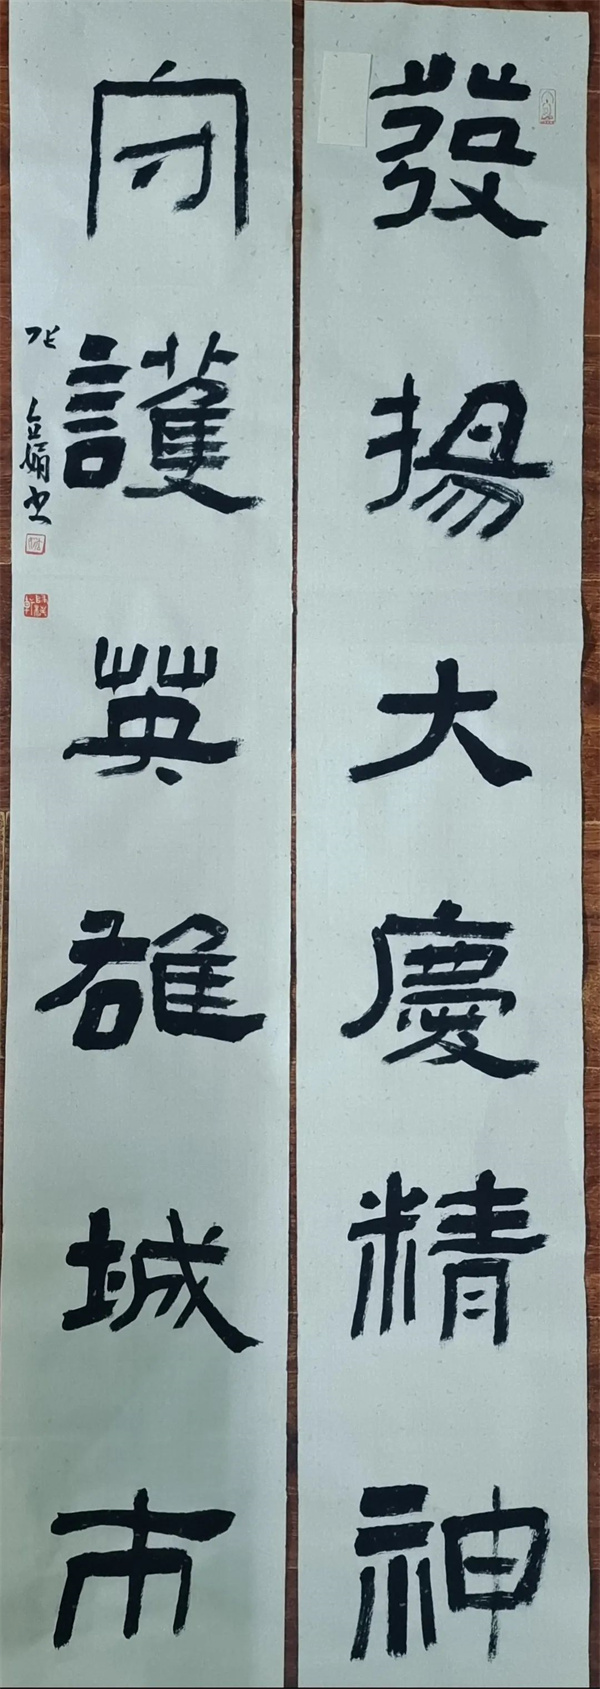 發揚大慶精神
守護英雄城市
張金娟書